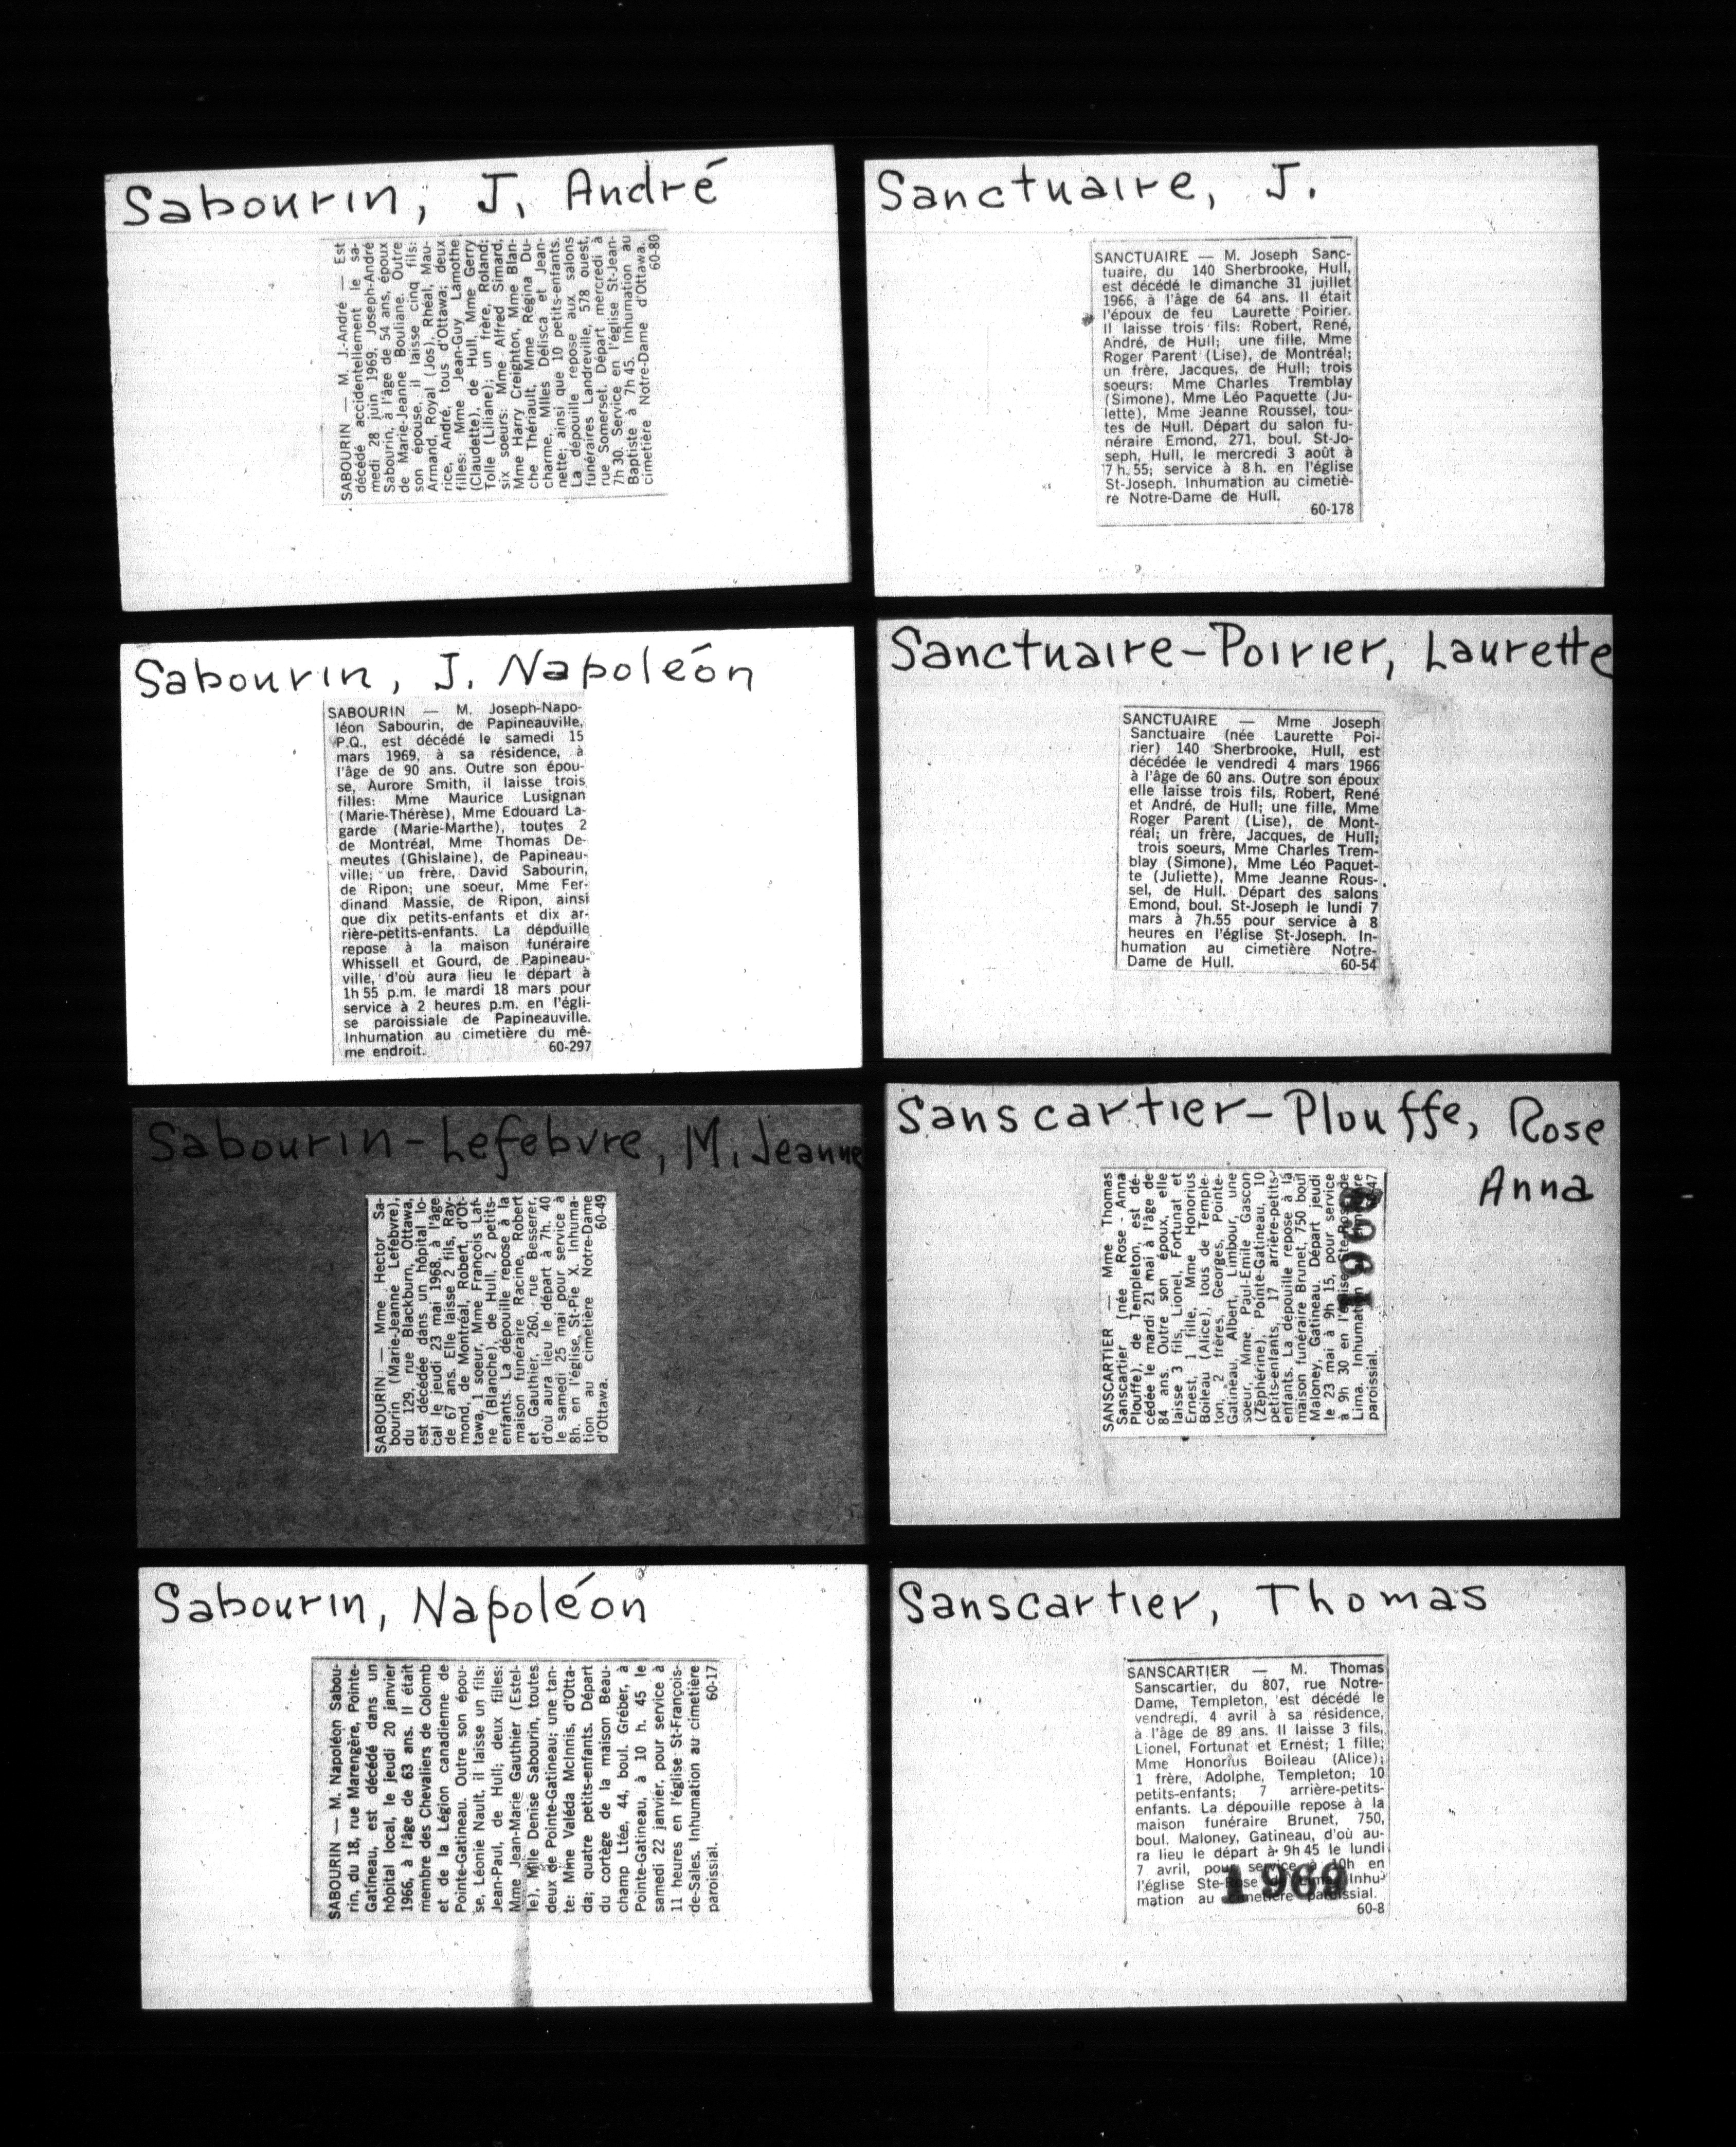 Sabourin, J. André
SABOURIN — M. J.-André — Est
décédé accidentellement le sa-
medi 28 juin 1969, Joseph-André
Sabourin, à l'âge de 54 ans, époux
de Marie-Jeanne Bouliane. Outre
son épouse, il laisse cinq fils:
Armand, Royal (Jos), Rhéal, Mau-
rice, André, tous d'Ottawa; deux
filles: Mme Jean-Guy Lamothe
(Claudette), de Hull, Mme Gerry
Tolle (Liliane); un frère, Roland;
six soeurs: Mme Alfred Simard,
Mme Harry Creighton, Mme Blan-
che Thériault, Mme Régina Du-
charme, Mlles Délisca et Jean-
nette; ainsi que 10 petits-enfants.
La dépouille repose aux salons
funéraires Landreville, 578 ouest,
rue Somerset. Départ mercredi à
7h 30. Service en l'église St-Jean-
Baptiste à 7h 45. Inhumation au
cimetière Notre-Dame d'Ottawa.
60-80
Sabourin, J. Napoléon
SABOURIN — M. Joseph-Napo-
léon Sabourin, de Papineauville,
P.Q., est décédé le samedi 15
mars 1969, à sa résidence, à
l'âge de 90 ans. Outre son épou-
se, Aurore Smith, il laisse trois
filles: Mme Maurice Lusignan
(Marie-Thérèse), Mme Edouard La-
garde (Marie-Marthe), toutes 2
de Montréal, Mme Thomas De-
meutes (Ghislaine), de Papineau-
ville; un frère, David Sabourin,
de Ripon; une soeur, Mme Fer-
dinand Massie, de Ripon, ainsi
que dix petits-enfants et dix ar-
rière-petits-enfants. La dépouille
repose à la maison funéraire
Whissell et Gourd, de Papineau-
ville, d'où aura lieu le départ à
1h 55 p.m. le mardi 18 mars pour
service à 2 heures p.m. en l'égli-
se paroissiale de Papineauville.
Inhumation au cimetière du mê-
me endroit. 60-297
Sabourin-Lefebvre, M. Jeanne
SABOURIN — Mme Hector Sa-
bourin (Marie-Jeanne Lefebvre),
du 129, rue Blackburn, Ottawa,
est décédée dans un hôpital lo-
cal le jeudi 23 mai 1968, à l'âge
de 67 ans. Elle laisse 2 fils, Ray-
mond, de Montréal, Robert, d'Ot-
tawa, 1 soeur, Mme François Laf-
ne (Blanche), de Hull, 2 petits-
enfants. La dépouille repose à la
maison funéraire Racine, Robert
et Gauthier, 260, rue Besserer,
d'où aura lieu le départ à 7h. 40
le samedi 25 mai pour service à
8h. en l'église St-Pie X. Inhuma-
tion au cimetière Notre-Dame
d'Ottawa. 60-49
Sabourin, Napoléon
SABOURIN — M. Napoléon Sabou-
rin, du 18, rue Marengère, Pointe-
Gatineau, est décédé dans un
hôpital local, le jeudi 20 janvier
1966, à l'âge de 63 ans. Il était
membre des Chevaliers de Colomb
et de la Légion canadienne de
Pointe-Gatineau. Outre son épou-
se, Léonie Nault, il laisse un fils:
Jean-Paul, de Hull; deux filles:
Mme Jean-Marie Gauthier (Estel-
le), Mlle Denise Sabourin, toutes
deux de Pointe-Gatineau; une tan-
te: Mme Valéda McInnis, d'Otta-
da; quatre petits-enfants. Départ
du cortège de la maison Beau-
champ Ltée, 44, boul. Gréber, à
Pointe-Gatineau, à 10 h. 45 le
samedi 22 janvier, pour service à
11 heures en l'église St-François-
de-Sales. Inhumation au cimetière
paroissial. 60-17
Sanctuaire, J.
SANCTUAIRE — M. Joseph Sanc-
tuaire, du 140 Sherbrooke, Hull,
est décédé le dimanche 31 juillet
1966, à l'âge de 64 ans. Il était
l'époux de feu Laurette Poirier.
Il laisse trois fils: Robert, René,
André, de Hull; une fille, Mme
Roger Parent (Lise), de Montréal;
un frère, Jacques, de Hull; trois
soeurs: Mme Charles Tremblay
(Simone), Mme Léo Paquette (Ju-
lette), Mme Jeanne Roussel, tou-
tes de Hull. Départ du salon fu-
néraire Emond, 271, boul. St-Jo-
seph, Hull, le mercredi 3 août à
7 h. 55; service à 8 h. en l'église
St-Joseph. Inhumation au cimetiè-
re Notre-Dame de Hull.
60-178
Sanctuaire-Poirier, Laurette
SANCTUAIRE — Mme Joseph
Sanctuaire (née Laurette Poi-
rier) 140 Sherbrooke, Hull, est
décédée le vendredi 4 mars 1966
à l'âge de 60 ans. Outre son époux
elle laisse trois fils, Robert, René
et André, de Hull; une fille, Mme
Roger Parent (Lise), de Mont-
réal; un frère, Jacques, de Hull;
trois soeurs, Mme Charles Trem-
blay (Simone), Mme Léo Paquet-
te (Juliette), Mme Jeanne Rous-
sel, de Hull. Départ des salons
Emond, boul. St-Joseph le lundi 7
mars à 7h.55 pour service à 8
heures en l'église St-Joseph. In-
humation au cimetière Notre-
Dame de Hull. 60-54
Sanscartier-Plouffe, Rose
Anna
SANSCARTIER — Mme Thomas
Sanscartier (née Rose-Anna
Plouffe), de Templeton, est dé-
cédée le mardi 21 mai à l'âge de
84 ans. Outre son époux, elle
laisse 3 fils, Lionel, Fortunat et
Ernest, 1 fille, Mme Honorius
Boileau (Alice), tous de Temple-
ton, 2 frères, Georges, Pointe-
Gatineau, Albert, Limbour, une
soeur, Mme Paul-Emile Gascon
(Zéphérine), Pointe-Gatineau, 10
petits-enfants, 17 arrière-petits-
enfants. La dépouille repose à la
maison funéraire Brunet, 750 boul
Maloney, Gatineau. Départ jeudi
le 23 mai à 9h 15, pour service
à 9h 30 en l'église Ste-Rose de
Lima. Inhumation
paroissial. 47
1968
Sanscartier, Thomas
SANSCARTIER — M. Thomas
Sanscartier, du 807, rue Notre-
Dame, Templeton, est décédé le
vendredi, 4 avril à sa résidence,
à l'âge de 89 ans. Il laisse 3 fils,
Lionel, Fortunat et Ernest; 1 fille;
Mme Honorius Boileau (Alice);
1 frère, Adolphe, Templeton; 10
petits-enfants; 7 arrière-petits-
enfants. La dépouille repose à la
maison funéraire Brunet, 750,
boul. Maloney, Gatineau, d'où au-
ra lieu le départ à 9h 45 le lundi
7 avril, pour service à 10h en
l'église Ste-Rose Inhu-
mation au cimetière paroissial.
60-8
1969